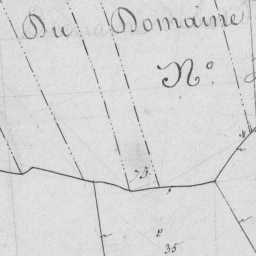 Du Domaine
N.º
73
35